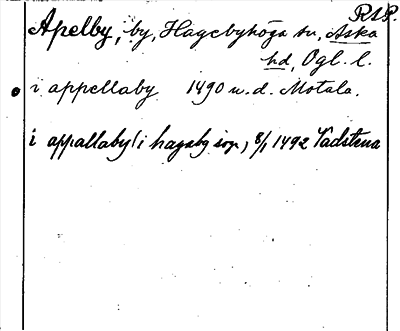 RAP.
Apelby, by, Hagebyhöga sn, Aska
hd, Ögl. l.
i appellaby 1490 u. d. Motala.
i appallaby (i hagaby sogn, 8/1 1492 Vadstena